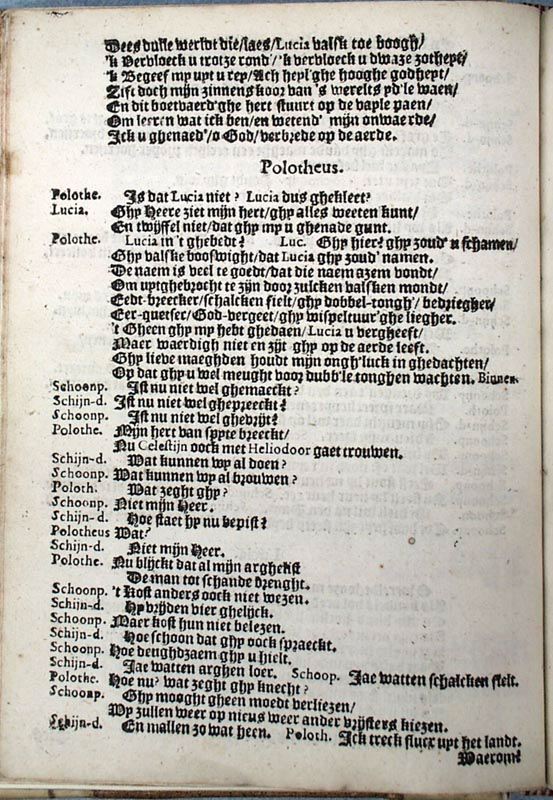 Dees dulle werldt die/laes/Lucia valsk toe boogh/
'k Vervloeck u trotze rond'/'k vervloeck u dwaze zotheyt/
'k Begeef my upt u rey/Ach heyl'ghe hooghe godheyt/
Zift doch mijn zinnens koor van 's werelts yd'le waen/
En dit boetvaerd'ghe hert stuurt op de vayle paen/
Om leeren wat ick ben/en wetend' mijn onwaerde/
Ick u ghenaed'/o God/verbrede op de aerde.
Polotheus.
Polothe. Is dat Lucia niet? Lucia dus ghekleet?
Lucia. Ghy Heere ziet mijn hert/ghy alles weeten kunt/
En twijffel niet/dat ghy my u ghenade gunt.
Polothe. Lucia in 't ghebedt? Luc. Ghy hier? ghy zoud' u schamen/
Ghy valske booswight/dat Lucia ghy zoud' namen.
De naem is veel te goedt/dat die naem azem vondt/
Om uptghebrocht te zijn door zulcken valsken mondt/
Eedt-breecker/schalcken fielt/ghy dobbel-tongh'/bedriegher/
Eer-quetser/God-vergeet/ghy wispeltuur'ghe liegher.
't Gheen ghy my hebt ghedaen/Lucia u vergheeft/
Maer waerdigh niet en zijt ghy op de aerde leeft.
Ghy lieve maeghden houdt mijn ongh'luck in ghedachten/
Op dat ghy u wel meught voor dubb'le tonghen wachten. Binnen.
Schoonp. Ist nu niet wel ghemaeckt?
Schijn-d. Ist nu niet wel ghepreeckt?
Schoonp. Ist nu niet wel ghevrijt?
Polothe. Mijn hert van spyte breeckt/
Nu Celestijn oock met Heliodoor gaet trouwen.
Schijn-d. Wat kunnen wy al doen?
Schoonp. Wat kunnen wy al brouwen?
Poloth. Wat zeght ghy?
Schoonp. Niet mijn Heer.
Schijn-d. Hoe staet hy nu bepist?
Polotheus Wat?
Schijn-d. Niet mijn Heer.
Polothe. Nu blijckt dat al mijn arghelist
De man tot schande brenght.
Schoonp. 't Kost anders oock niet wezen.
Schijn-d. Hy vrijden vier ghelijck.
Schoonp. Maer kost hun niet belezen.
Schijn-d. Hoe schoon dat ghy oock spraeckt.
Schoonp. Hoe deughdzaem ghy u hielt.
Schijn-d. Jae watten arghen loer. Schoop. Jae watten schalcken fielt.
Polothe. Hoe nu? wat zeght ghy knecht?
Schoonp. Ghy mooght gheen moedt verliezen/
Wy zullen weer op nieus weer ander vrijsters kiezen.
Schijn-d. En mallen zo wat heen. Poloth. Ick treck flucx upt het landt.
Waerom?